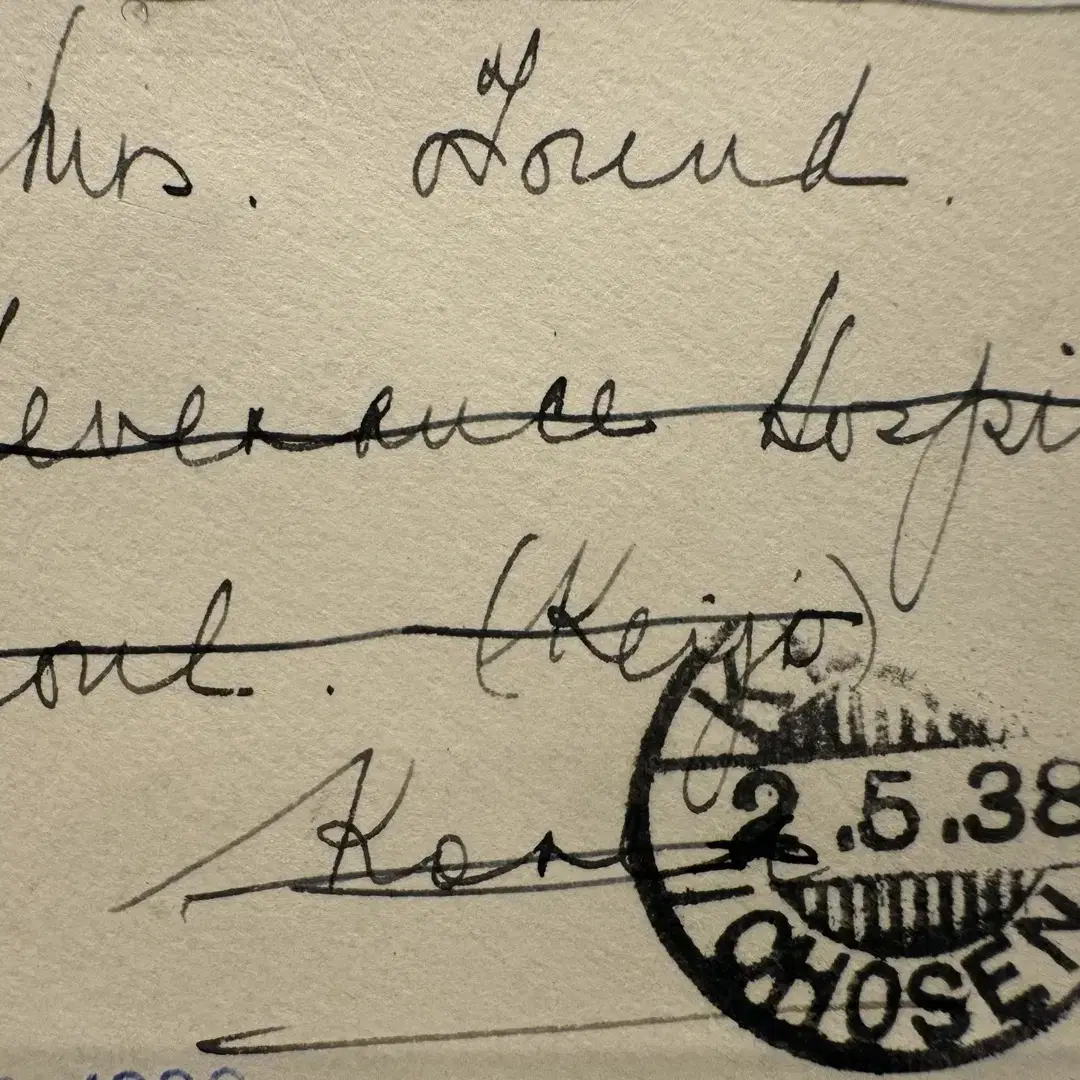 Mrs. Found.
Severance Hospi
oul. (Keijo)
Korea
K
2.5.38
CHOSEN